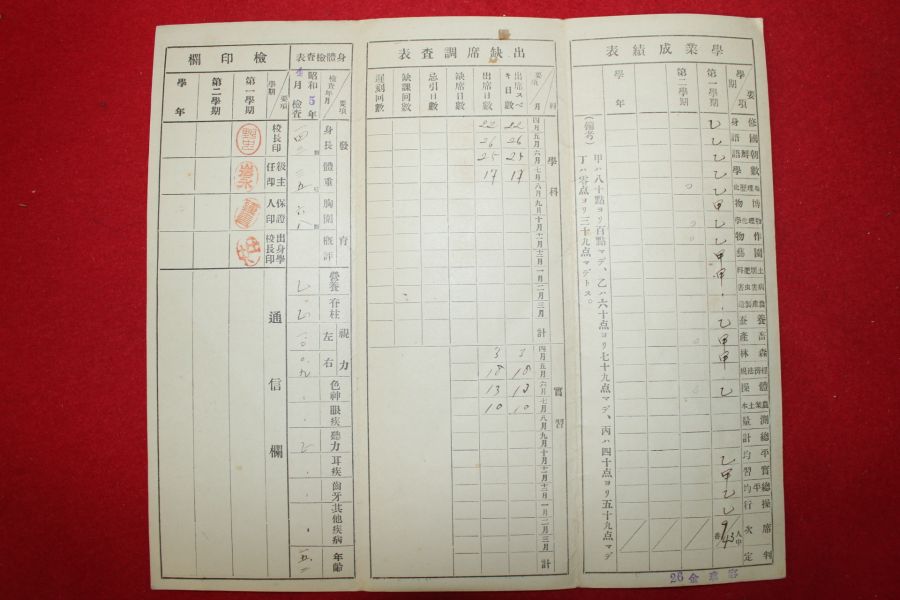 學業成績表
要項
學期
第一學期
第二學期
學年
修身
國語
朝鮮語
數學
地理歷史
博物
物理化學
作物
園藝
土壤肥料
病虫害
農產製造
養蚕
畜産
森林
經濟法規
體操
農業土木
測量
總計
平均
實習
總平均
操行
席次
判定
乙
乙
乙
乙
甲
乙
乙
甲
甲
乙
甲
甲
乙
乙
甲
乙
乙
9/43
人中
番
(備考) 甲ハ八十點ヨリ百點マデ、乙ハ六十点ヨリ七十九点マデ、丙ハ四十点ヨリ五十九点マデ
丁ハ零点ヨリ三十九点マデトス。
26
出缺席調査表
科
要項
月
出席スベキ日數
出席日數
缺席日數
忌引日數
缺課回數
遲刻回數
學科
四月 22 22
五月 26 26
六月 25 25
七月 17 17
八月
九月
十月
十一月
十二月
一月
二月
三月
計
實習
四月 3 3
五月 18 18
六月 13 13
七月 10 10
八月
九月
十月
十一月
十二月
一月
二月
三月
計
身體檢査表
要項
檢査年月
昭和5年
月檢査
發育
身長
體重
胸圍
概評
營養
脊柱
視力
左
右
色神
眼疾
聽力
耳疾
齒牙
其他疾病
年齡
檢印欄
要項
學期
第一學期
第二學期
學年
校長印
級主任印
保證人印
出身學校長印
通信欄